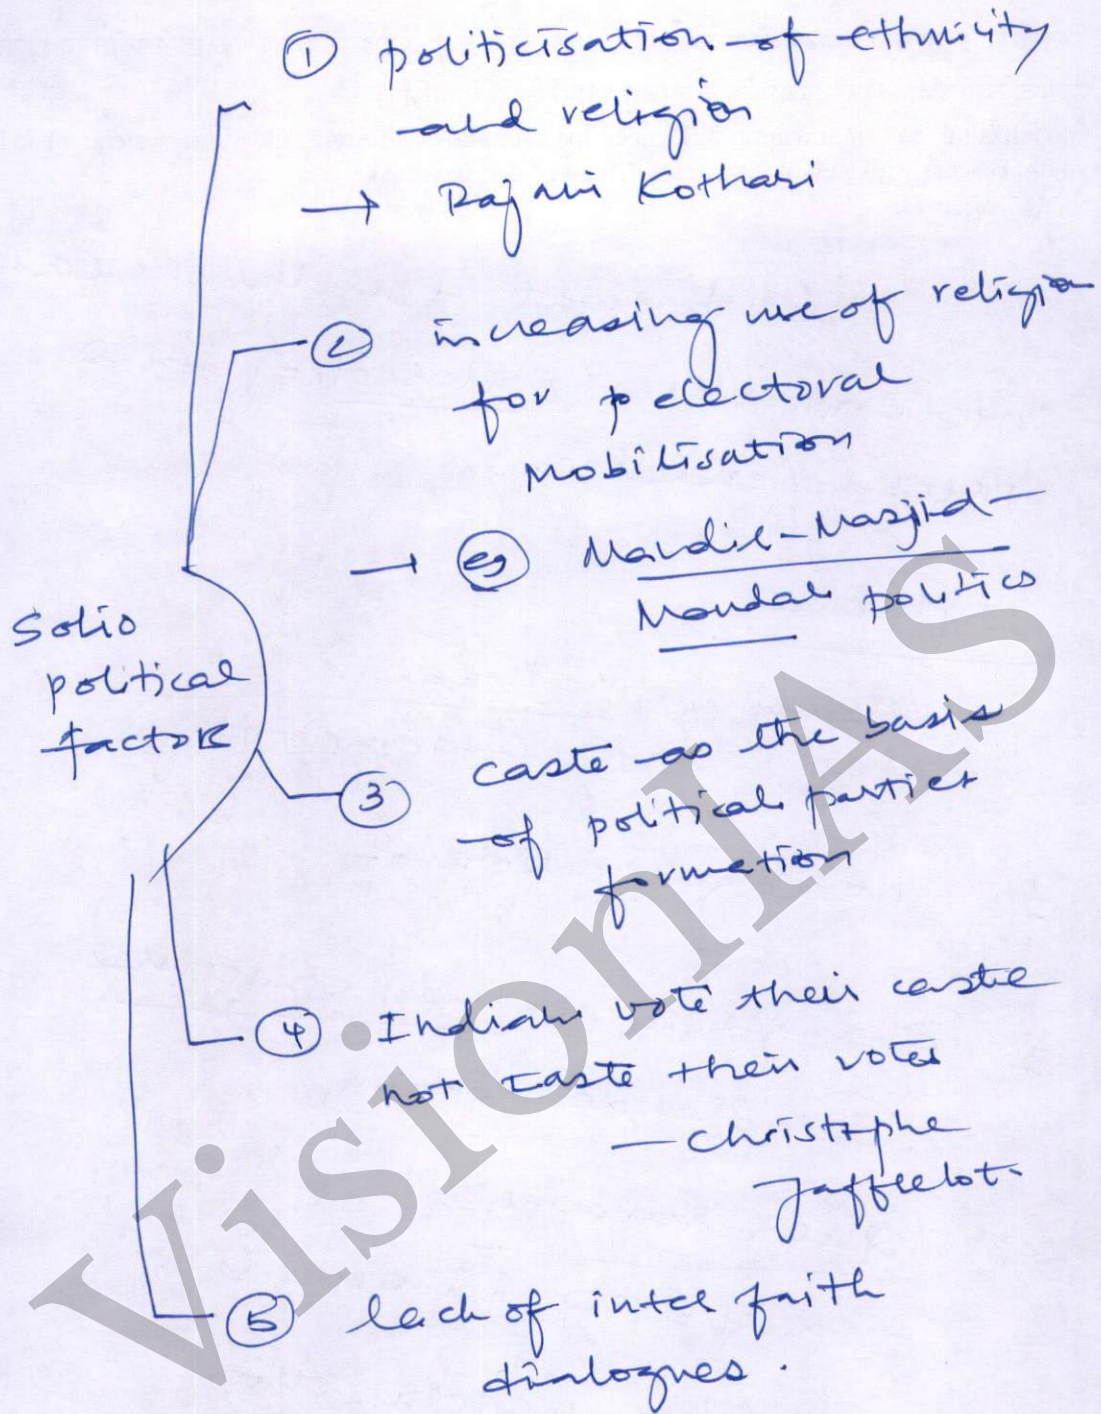 ① politicisation of ethnicity
and religion
→ Rajani Kothari
② increasing use of religion
for p electoral
Mobilisation
→ eg Mandir-Masjid-
Mandal politics
Socio
political
factors
③ caste as the basis
of political parties
formation
④ Indians vote their caste
not caste their votes
— Christophe
Jaffrelot.
⑤ lack of inter faith
dialogues.
VisionIAS